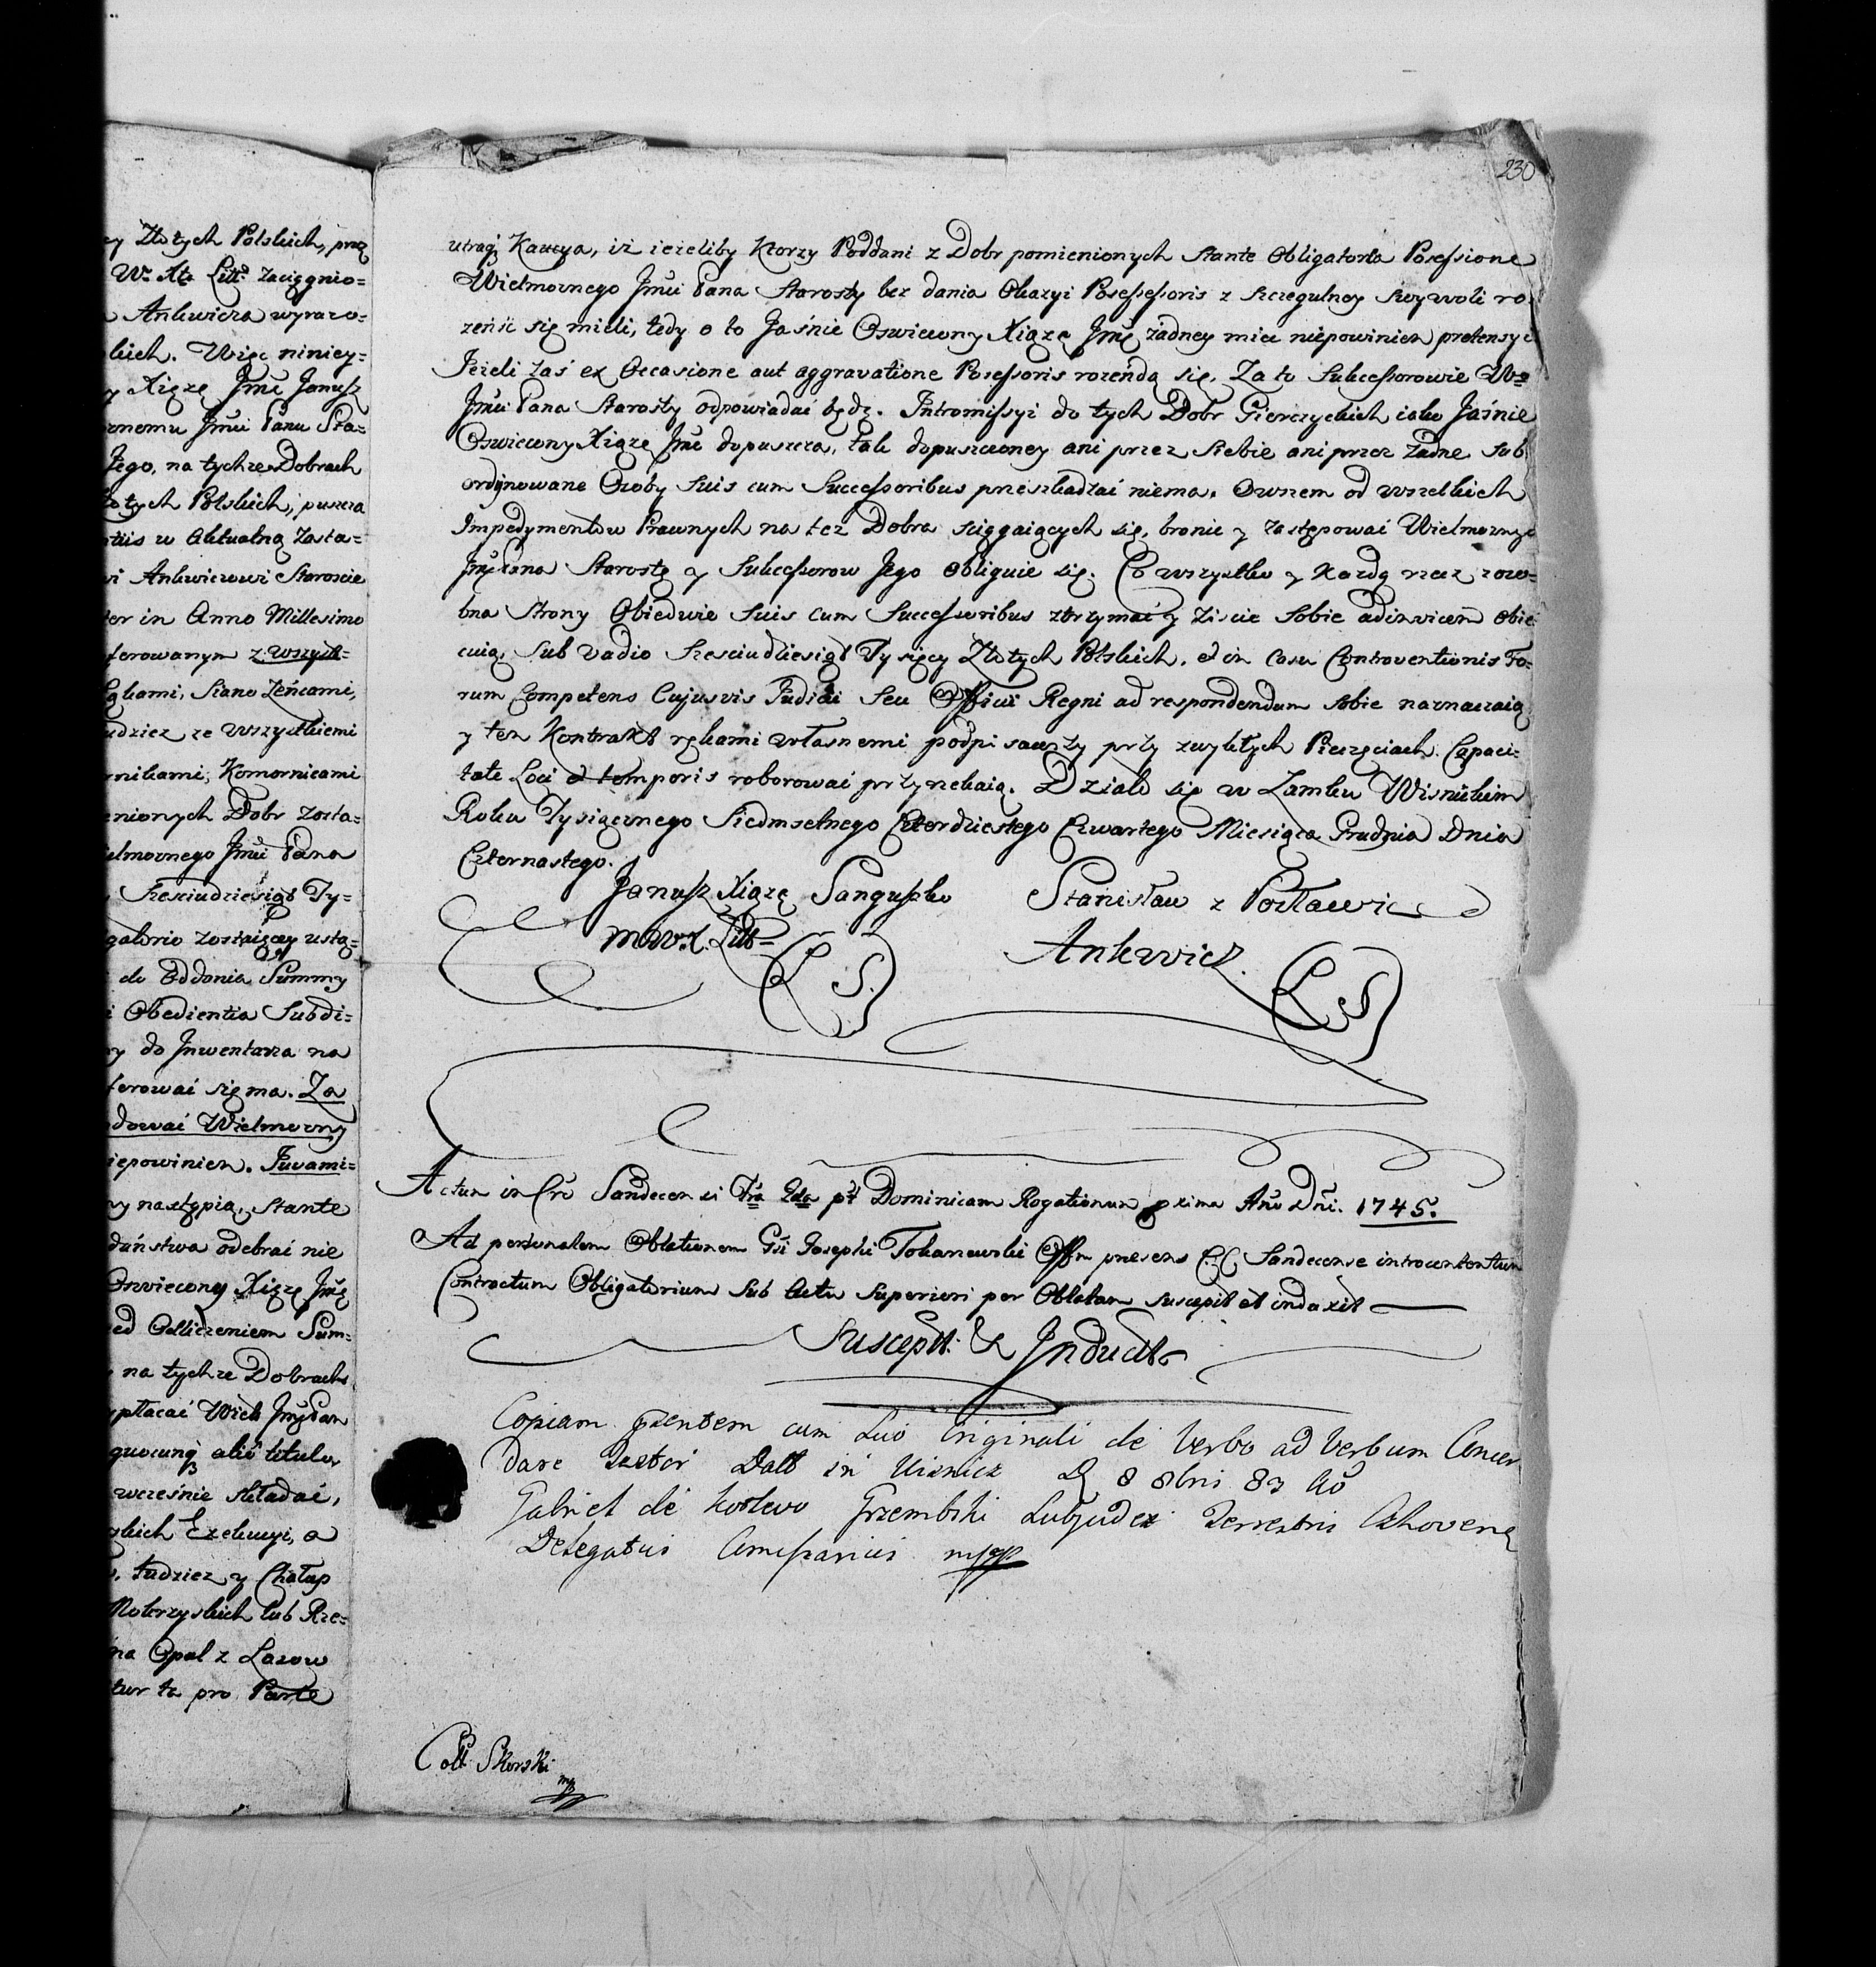 y Złotych Polskich, prez
W. Xa Litt. zaciągnio-
Ankwicza wyrazo-
skich. Więc niniey-
y Xiązę Jmć Janusz
mnemu Jmci Panu Sta-
Jego, na tychze Dobrach
łotych Polskich, puszcza
w Aktualną Zasta-
wi Ankwiczowi Staroscie
ter in Anno Millesimo
ferowanym z wszyst-
Łąkami, Siano Zeńcami,
udziez ze wszystkiemi
rnikami, Komornicami
enionych Dobr zosta-
ielmoznego Jmci Pana
Szesciudziesiąt Ty-
galorio zostaiący usta-
do Oddania Summy
i Obedientia Subdi-
y do Inwentarza na
ferowai się ma. Za
dowai Wielmozny
iepowinien. Juvami-
y nastąpią, stante
daństwa odebrai nie
Oswiecony Xiązę Jmć
ed Odliczeniem Sum-
na tychze Dobrach
płacai Wiel Jmć Pan
quocunq alio titulo
wczesnie składai,
skich Exekucyi, a
Tudziez y Chałup
Mokrzyskich lub Rze-
na Opal z Lasow
tur ta pro Parte
230
utraq Kaucya, iz iezeliby Ktorzy Poddani z Dobr pomienionych Stante Obligatoria Possessione
Wielmoznego Jmci Pana Starosty bez dania Okazyi Possessoris z szczegulney swywoli ro-
zeńść się mieli, tedy o to Jaśnie Oswiecony Xiązę Jmć żadney miec niepowinien pretensyi
Jeżeli zaś ex Occasione aut aggravatione Possessoris rozeńdą się, Za to Sukcessorowie W
Jmci Pana Starosty odpowiadać będą. Intromissyi do tych Dobr Gierczyckich iako Jaśnie
Oswiecony Xiązę Jmć dopuszcza, tak dopuszczoney ani przez siebie ani przez Zadne sub
ordynowane Osoby suis cum Successoribus przeszkadzać niema. Owszem od wszelkich
Impedymentow Prawnych na tez Dobra sciągaiących się, bronic y zastępowai Wielmoznego
Jmć Pana Starostę y Sukcessorow Jego obliguie się. Co wszystko y Kazdą rzecz zoso-
bna Strony Obiedwie suis cum Successoribus ztrzymać y ziscic sobie adinvicem obie
cuią, sub vadio Szesciudziesiąt Tysięcy Złotych Polskich, et in Casu Controventionis Fo-
rum Competens Cujusvis Judicii seu Officii Regni ad respondendum sobie naznaczaią
y ten Kontrakt rękami własnemi podpisawszy przy zwykłych Pieczęciach Capaci-
tate Loci et temporis roborowai przyrzekaią. Działo się w Zamku Wisnickim
Roku Tysiącznego Siedmsetnego Czterdziestego Czwartego Miesiąca Grudnia Dnia
Czternastego.
Janusz Xiązę Sanguszko Stanisław z Posławic
M. W. X. Litt Ankwicz.
L S. L S
Actum in Cro Sandecensi Fria 2da pt Dominicam Rogationum pxima Ano Dni. 1745.
Ad personalem Oblationem Gsi Josephi Tokanewski Offm presens C. C. Sandecense introcontentum
Contractum Obligatorium Sub Actu Superiori per Oblatam suscepit et induxit
Suscept. & Induct
Copiam pzentem cum Suo Originali de Verbo ad Verbum Concor
dare testor Datt in Wisnicz D 8 8bris 83 Ao
Gabriel de Kostewo Grzembski Subjudex Terrestris
Delegatus mpp
Coll. Skorski
mp